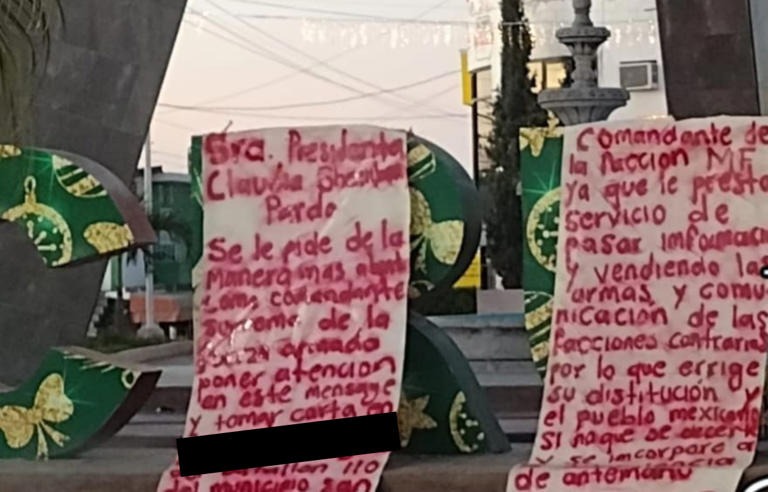 Sra. Presidenta
Claudia Sheinbaum
Pardo
Se le pide de la
manera mas atenta
como comandante
suprema de la
fuerza armada
poner atencion
en este mensage
y tomar carta en
del municipio san
Comandante de
la faccion MF
ya que le presto
servicio de
pasar informac
y vendiendo las
armas y comu
nicacion de las
facciones contrarias
por lo que errige
su distitución y
el pueblo mexicano
si haque se
y se incorpore a
de antemano